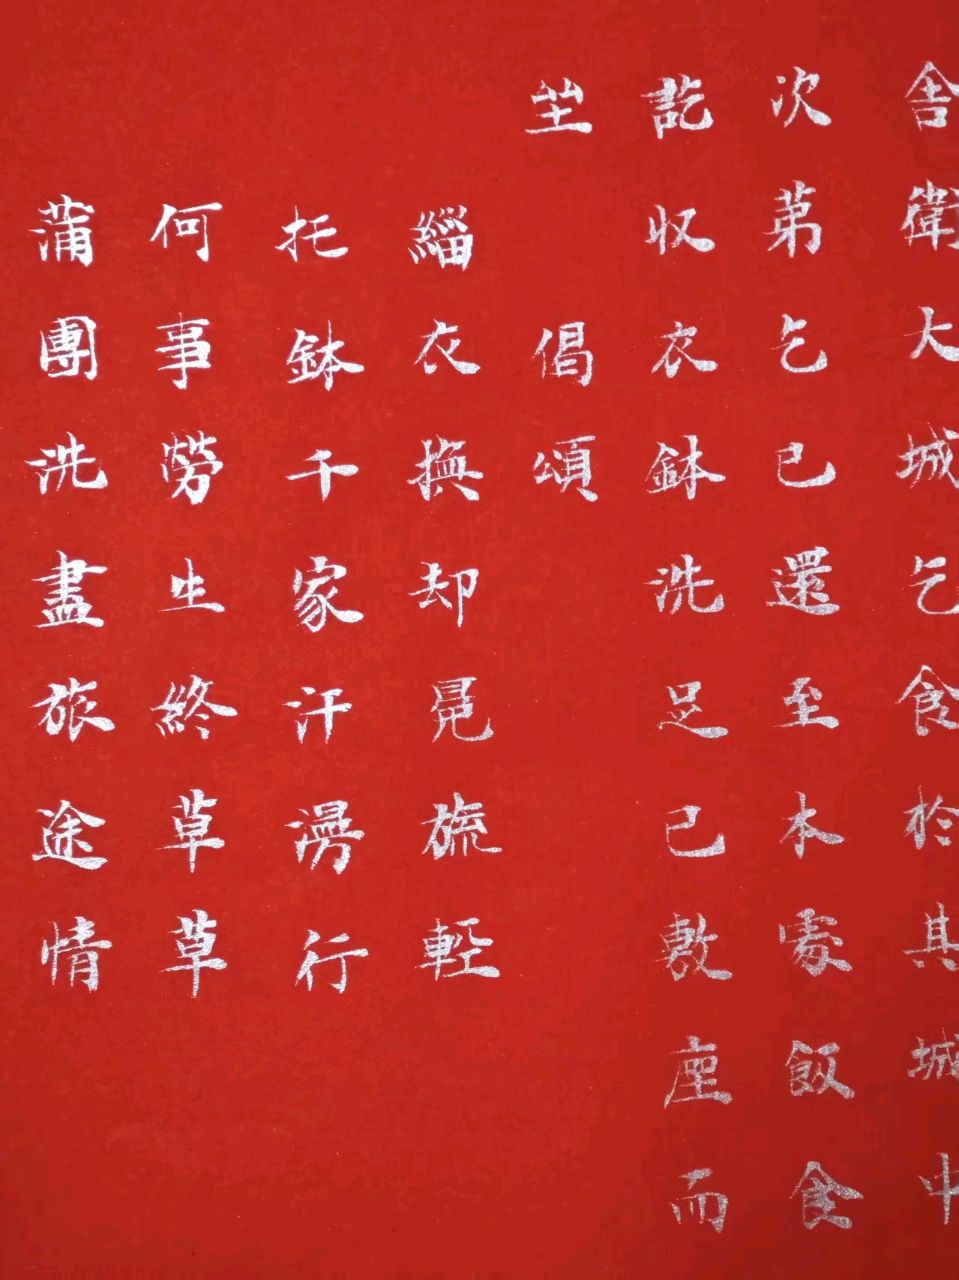 舍衛大城乞食於其城中
次第乞已還至本處飯食
訖収衣鉢洗足已敷座而
坐 偈頌
緇衣換却冕旒輕
托鉢千家汗漫行
何事勞生終草草
蒲團洗盡旅途情